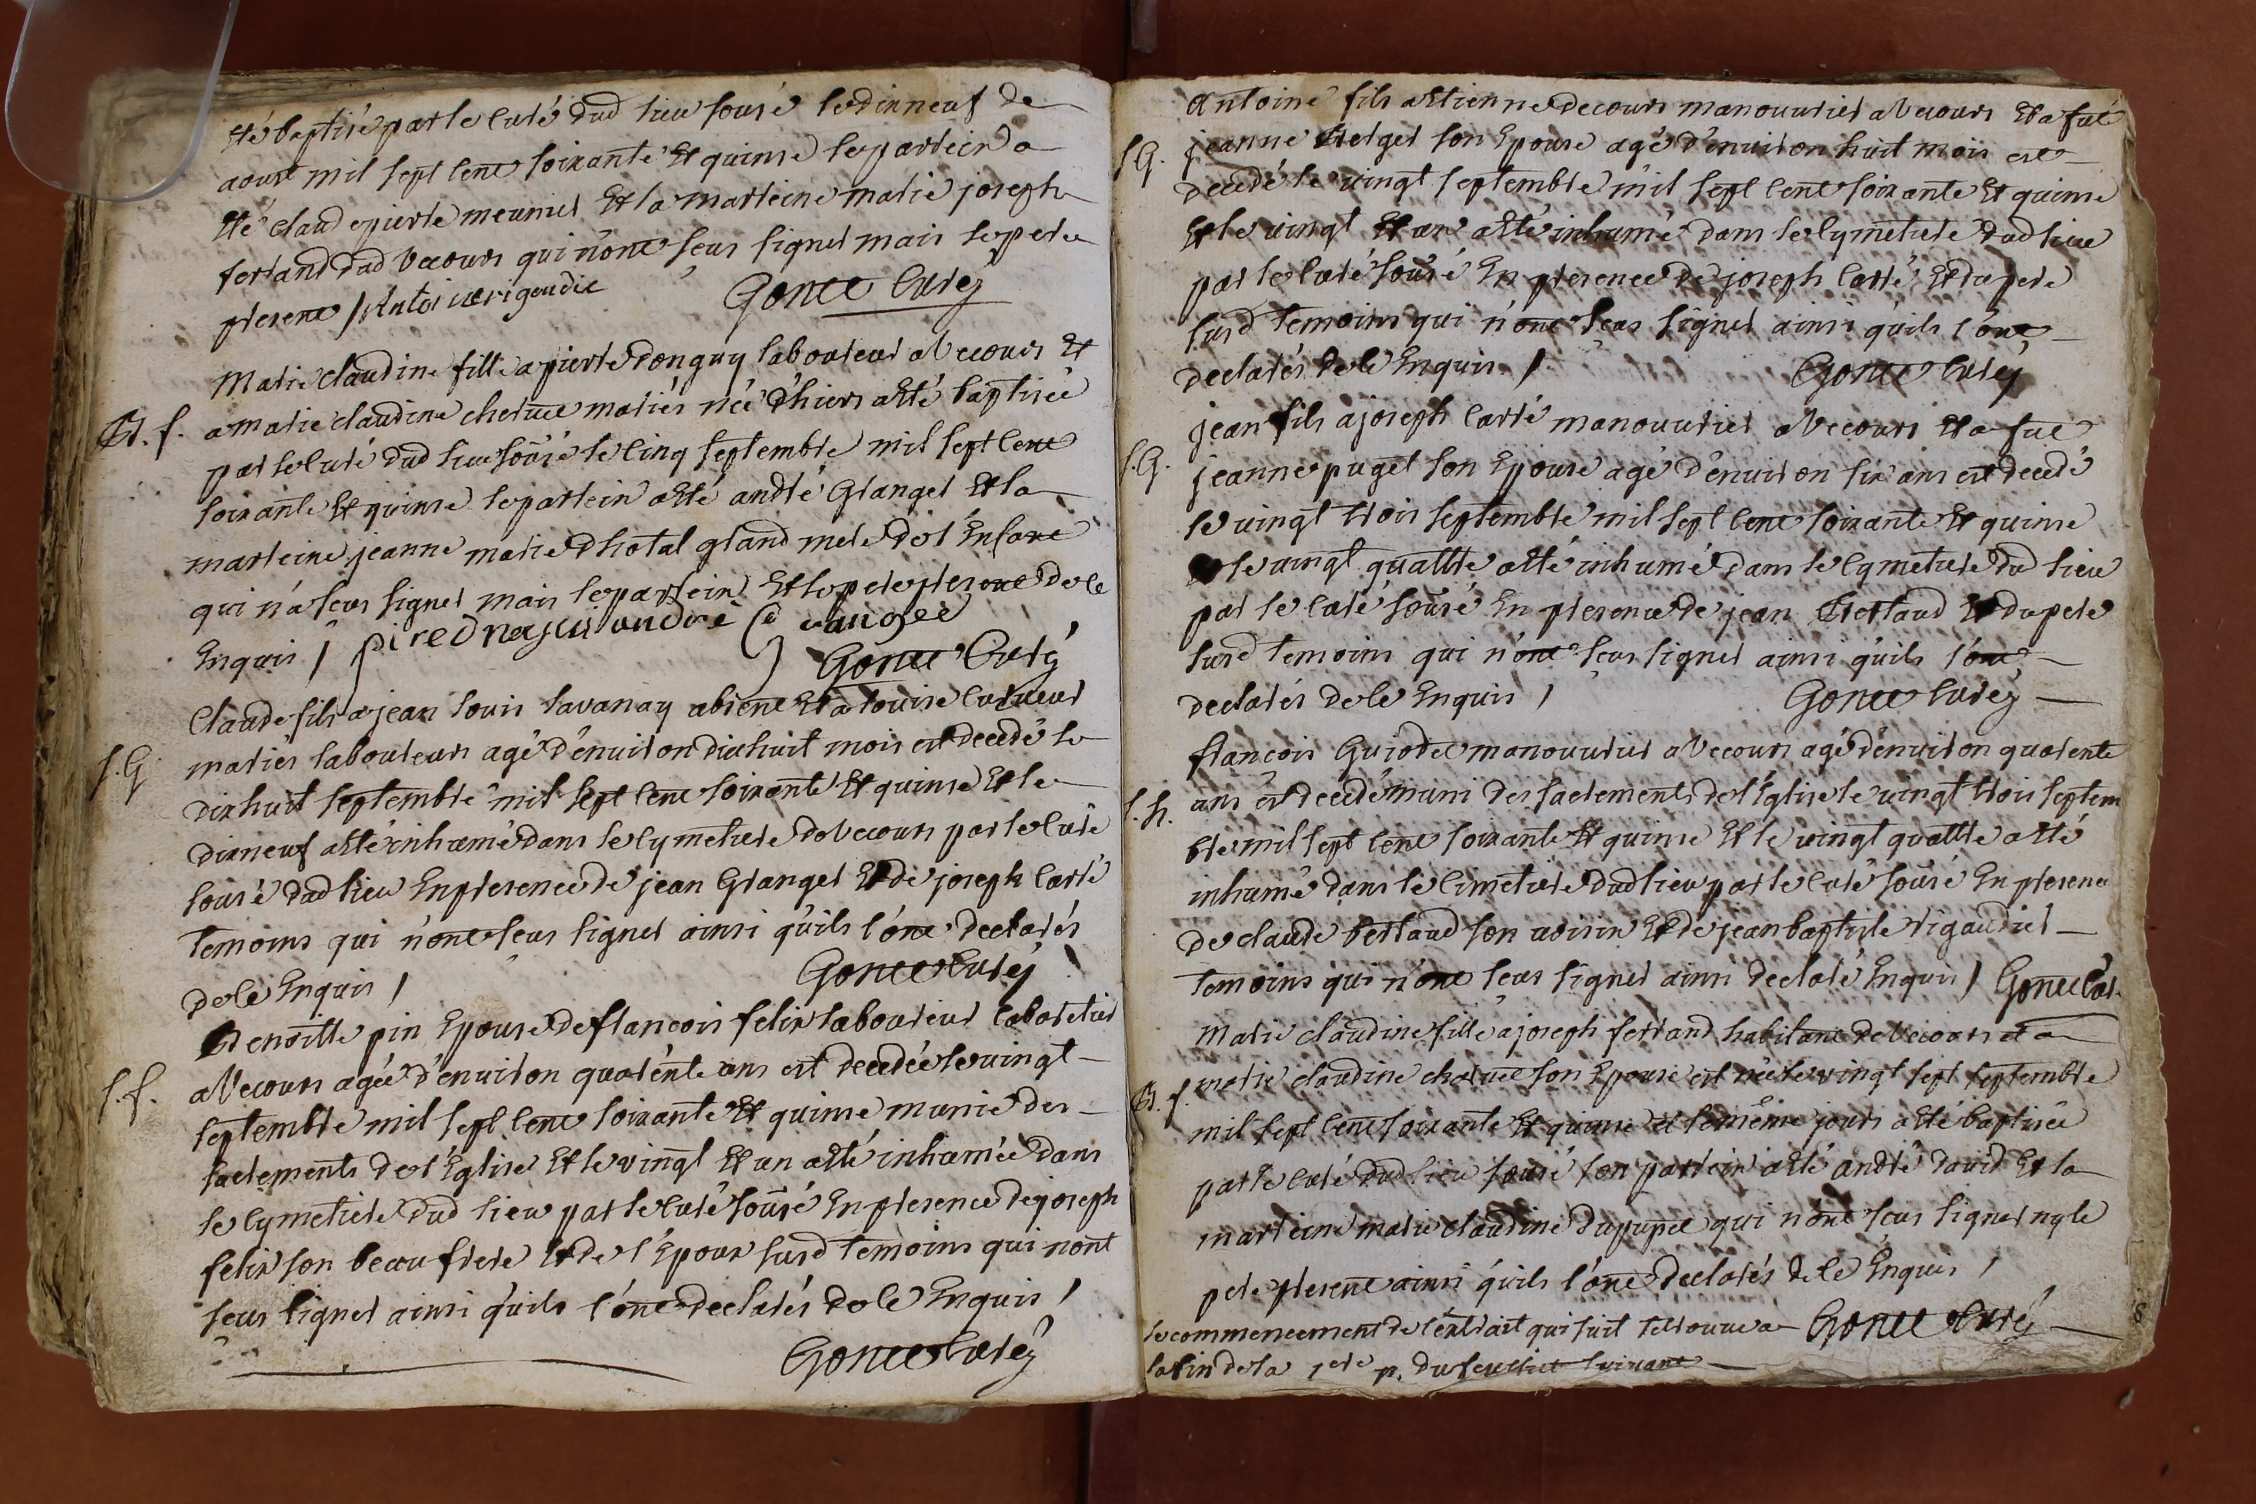 Eté baptisé par le curé dud lieu sousé le dixneuf de
aoust mil sept cent soixante Et quinse le parrein a
Eté claude pierre meunier Et la marreine marie joseph
ferrand dud Vecours qui n'ont seus signer mais le pere
present / Antoine rigaudie Gonet Curéy
Marie claudine fille a pierre donguy laboureur a Vecours Et
B. f. a marie claudine chatuet mariés née d'hiers a Eté baptisée
par le curé dud lieu sousé le cinq septembre mil sept cent
soixante Et quinse le parrein a Eté andré Granger Et la
marreine jeanne marie dhotal grand mere de l'Enfant
qui n'a seus signer mais le parrein Et le pere present de ce
Enquis / andré Gonet Curéy
Claude fils a jean louis savanay absent Et a louise
S. G. mariés laboureurs agé d'environ dixhuit mois est decedé le
dixhuit septembre mil sept cent soixante Et quinse Et le
dixneuf a Eté inhumé dans le cymetiere de Vecours par le curé
sousé dud lieu En presence de jean Granger Et de joseph carré
temoins qui n'ont seus signer ainsi qu'ils l'ont declarés
de ce Enquis / Gonet Curéy
Benoitte pin Epouse de francois felix laboureur cabaretier
S. f. a Vecours agée d'environ quarente ans est decedée le vingt
septembre mil sept cent soixante Et quinse munie des
sacrements de l'Eglise Et le vingt Et un a Eté inhumée dans
le cymetiere dud lieu par le curé sousé En presence de joseph
felix son beau frere Et de l'Epoux susd temoins qui n'ont
seus signer ainsi qu'ils l'ont declarés de ce Enquis /
Gonet Curéy
Antoine fils a Etienne decours manouvrier a Vecours Et a fut
S. G. jeanne Berger son Epouse agé d'environ huit mois est
decedé le vingt septembre mil sept cent soixante Et quinse
Et le vingt Et un a Eté inhumé dans le cymetiere dud lieu
par le curé sousé En presence de joseph carré Et du pere
susd temoins qui n'ont seus signer ainsi qu'ils l'ont
declarés de ce Enquis / Gonet Curéy
jean fils a joseph carré manouvrier a Vecours Et a fut
S. G. jeanne puget son Epouse agé d'environ six ans est decedé
le vingt trois septembre mil sept cent soixante Et quinse
Et le vingt quattre a Eté inhumé dans le cymetiere dud lieu
par le curé sousé En presence de jean Bertaud Et du pere
susd temoins qui n'ont seus signer ainsi qu'ils l'ont
declarés de ce Enquis / Gonet Curéy
francois Guiodet manouvrier a Vecours agé d'environ quarente
S. h. ans est decedé muni des sacrements de l'Eglise le vingt trois septem
bre mil sept cent soixante Et quinse Et le vingt quattre a Eté
inhumé dans le cimetiere dud lieu par le curé sousé En presence
de claude bertaud son voisin Et de jean baptiste rigaudier
temoins qui n'ont seus signer ainsi declaré Enquis / Gonet Cur.
Marie claudine fille a joseph ferrand habitant de Vecours et a
B. f. marie claudine chatuet son Epouse est née le vingt sept septembre
mil sept cent soixante Et quinse et le même jours a Eté baptisée
par le curé dud lieu sousé son parrein a Eté andré david Et la
marreine marie claudine dupupet qui n'ont seus signer ny le
pere present ainsi qu'ils l'ont declarés de ce Enquis /
le commencement de l'extrait qui suit se trouve a Gonet Curéy
la fin de la 1ere p. du feuillet suivant